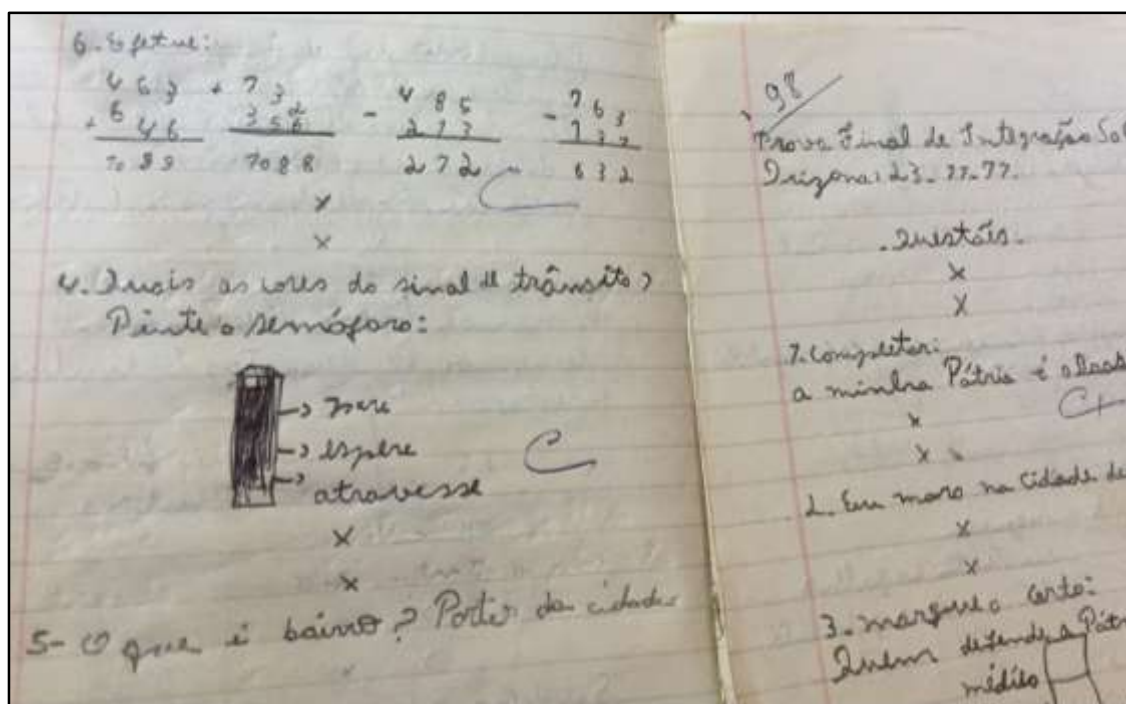 6. Efetue:
4 6 3 + 7 3 - 4 8 5 - 7 6 3
+ 6 4 6 2 7 3
7 0 8 8 2 7 2 6 3 2
x
x
4. Quais as cores do sinal de trânsito?
Pinte o semáforo:
→ pare
→ espere
→ atravesse
x
x
5- O que é bairro? Partes da cidade
98
Prova Final de Integração So
23-11-77.
Questões.
x
x
1. Completar:
a minha Pátria é o Bras
x
x
2. Eu moro na cidade de
x
x
3. marque o certo:
Quem defende a Pátr
médico